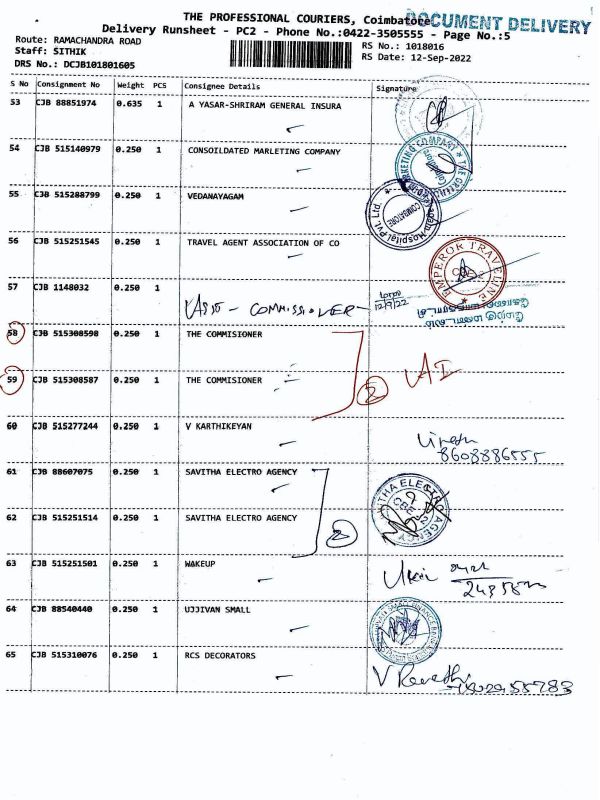 THE PROFESSIONAL COURIERS, Coimbatore
DOCUMENT DELIVERY
Delivery Runsheet - PC2 - Phone No.:0422-3505555 - Page No.:5
Route: RAMACHANDRA ROAD
RS No.: 1018016
Staff: SITHIK
RS Date: 12-Sep-2022
DRS No.: DCJB101801605
S No Consignment No Weight PCS Consignee Details Signature
53 CJB 88851974 0.635 1 A YASAR-SHRIRAM GENERAL INSURA
54 CJB 515140979 0.250 1 CONSOILDATED MARLETING COMPANY
55 CJB 515288799 0.250 1 VEDANAYAGAM
56 CJB 515251545 0.250 1 TRAVEL AGENT ASSOCIATION OF CO
EMPEROR TRAVELINE
57 CJB 1148032 0.250 1
ASST - COMMISSIONER -
12/9/22
58 CJB 515308598 0.250 1 THE COMMISIONER
59 CJB 515308587 0.250 1 THE COMMISIONER
2
60 CJB 515277244 0.250 1 V KARTHIKEYAN
8608886555
61 CJB 88607075 0.250 1 SAVITHA ELECTRO AGENCY
62 CJB 515251514 0.250 1 SAVITHA ELECTRO AGENCY
2
63 CJB 515251501 0.250 1 WAKEUP
64 CJB 88540440 0.250 1 UJJIVAN SMALL
65 CJB 515310076 0.250 1 RCS DECORATORS
V Revathi